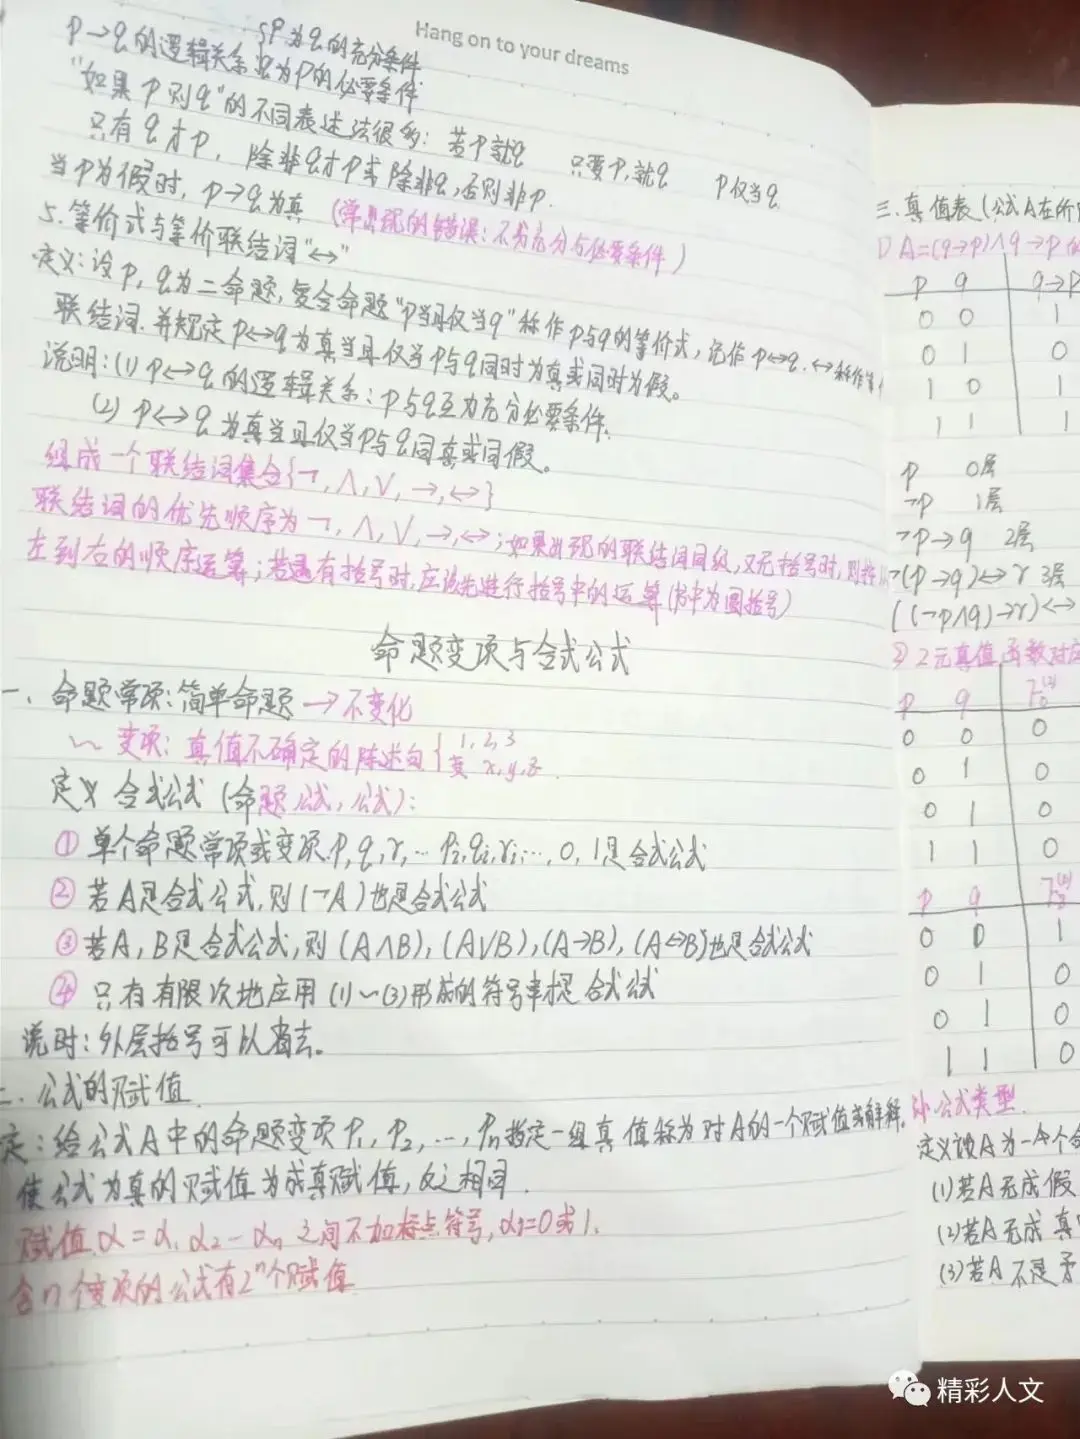 Hang on to your dreams
p→q的逻辑关系 {p为q的充分条件
q为p的必要条件
"如果p则q"的不同表述法很多: 若p就q 只要p,就q p仅当q
只有q才p, 除非q才p或除非q,否则非p.
当p为假时, p→q为真 (常出现的错误: 不分充分与必要条件)
5.等价式与等价联结词"↔"
定义:设p, q为二命题,复合命题"p当且仅当q"称作p与q的等价式,记作p↔q.↔称作等
联结词.并规定p↔q为真当且仅当p与q同时为真或同时为假。
说明:(1) p↔q的逻辑关系:p与q互为充分必要条件.
(2) p↔q为真当且仅当p与q同真或同假。
组成一个联结词集合{¬,∧,∨,→,↔}
联结词的优先顺序为¬,∧,∨,→,↔;如果出现的联结词同级,又无括号时,则按
左到右的顺序运算;若遇有括号时,应该先进行括号中的运算(书中为圆括号)
命题变项与合式公式
一、命题常项:简单命题→不变化
〃 变项: 真值不确定的陈述句{1,2,3
变 x,y,z
定义 合式公式 (命题公式,公式):
① 单个命题常项或变项.p,q,r,…pi,qi,ri,…,0,1是合式公式
② 若A是合式公式,则(¬A)也是合式公式
③ 若A,B是合式公式,则(A∧B),(A∨B),(A→B),(A↔B)也是合式公式
④ 只有有限次地应用(1)~(3)形成的符号串才是合式公式
说时:外层括号可以省去。
二.公式的赋值
定:给公式A中的命题变项p1,p2,…,pn指定一组真值称为对A的一个赋值或解释.
使公式为真的赋值为成真赋值,反之相同.
赋值α=α1α2…αn之间不加标点符号,αi=0或1.
含n个变项的公式有2ⁿ个赋值
三.真值表(公式A在所
A=(q→p)∧q→p的
p q q→p
0 0 1
0 1 0
1 0 1
1 1 1
p 0层
¬p 1层
¬p→q 2层
¬(p→q)↔r 3层
((¬p∧q)→r)↔
② 2元真值函数对应
p q F₀⁽²⁾
0 0 0
0 1 0
0 1 0
1 1 0
p q
0 0 1
0 1 0
0 1 0
1 1 0
公式类型.
定义设A为一个命
(1)若A无成假
(2)若A无成真
(3)若A不是矛
精彩人文